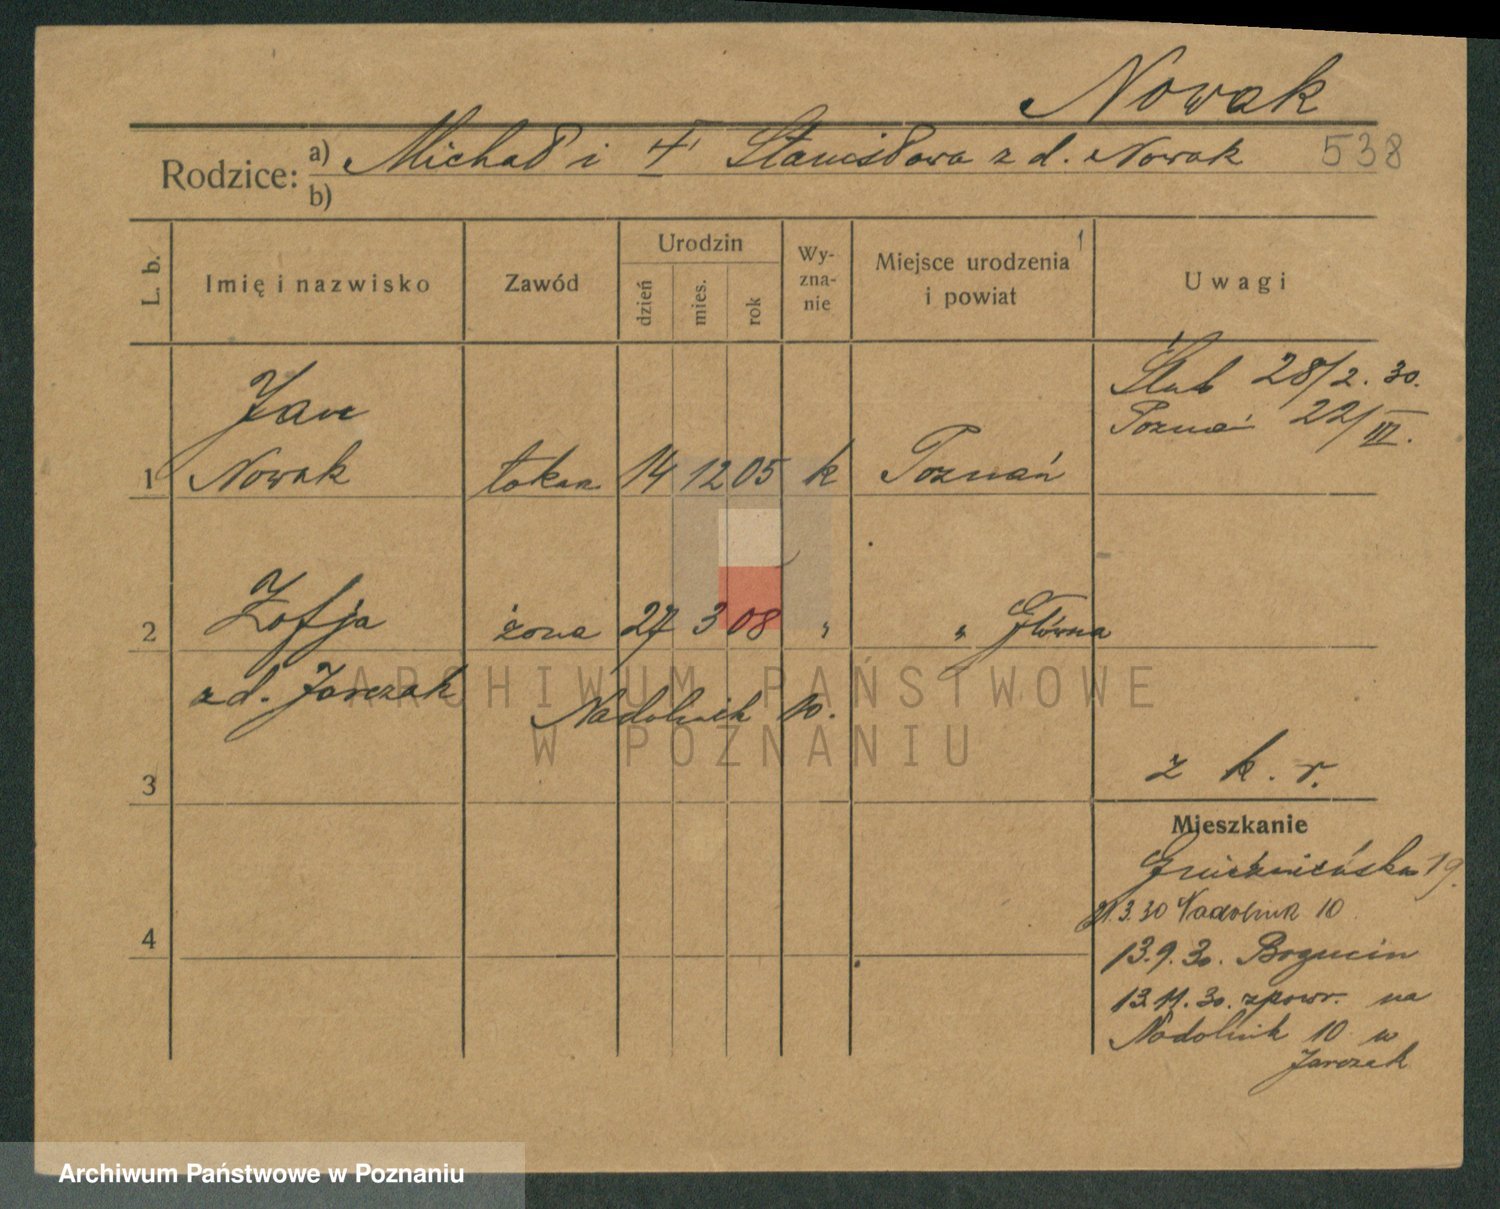 Nowak
Rodzice: a) Michał i † Stanisława z d. Nowak 538
b)
L. b. Imię i nazwisko Zawód Urodzin dzień mies. rok Wyznanie Miejsce urodzenia i powiat Uwagi
Ślub 28/2. 30.
Poznań 22/III.
Jan
1 Nowak tokarz 14 12 05 k Poznań
2 Zofja żona 27 3 08 " " Główna
z d. Jarczak Nadolnik 10.
ARCHIWUM PAŃSTWOWE
W POZNANIU
z k. r.
3
Mieszkanie
19.
21.3.30 Nadolnik 10
4
13.9.30. Bogucin
13.11.30. zpowr. na
Nadolnik 10 w
Jarczak
Archiwum Państwowe w Poznaniu